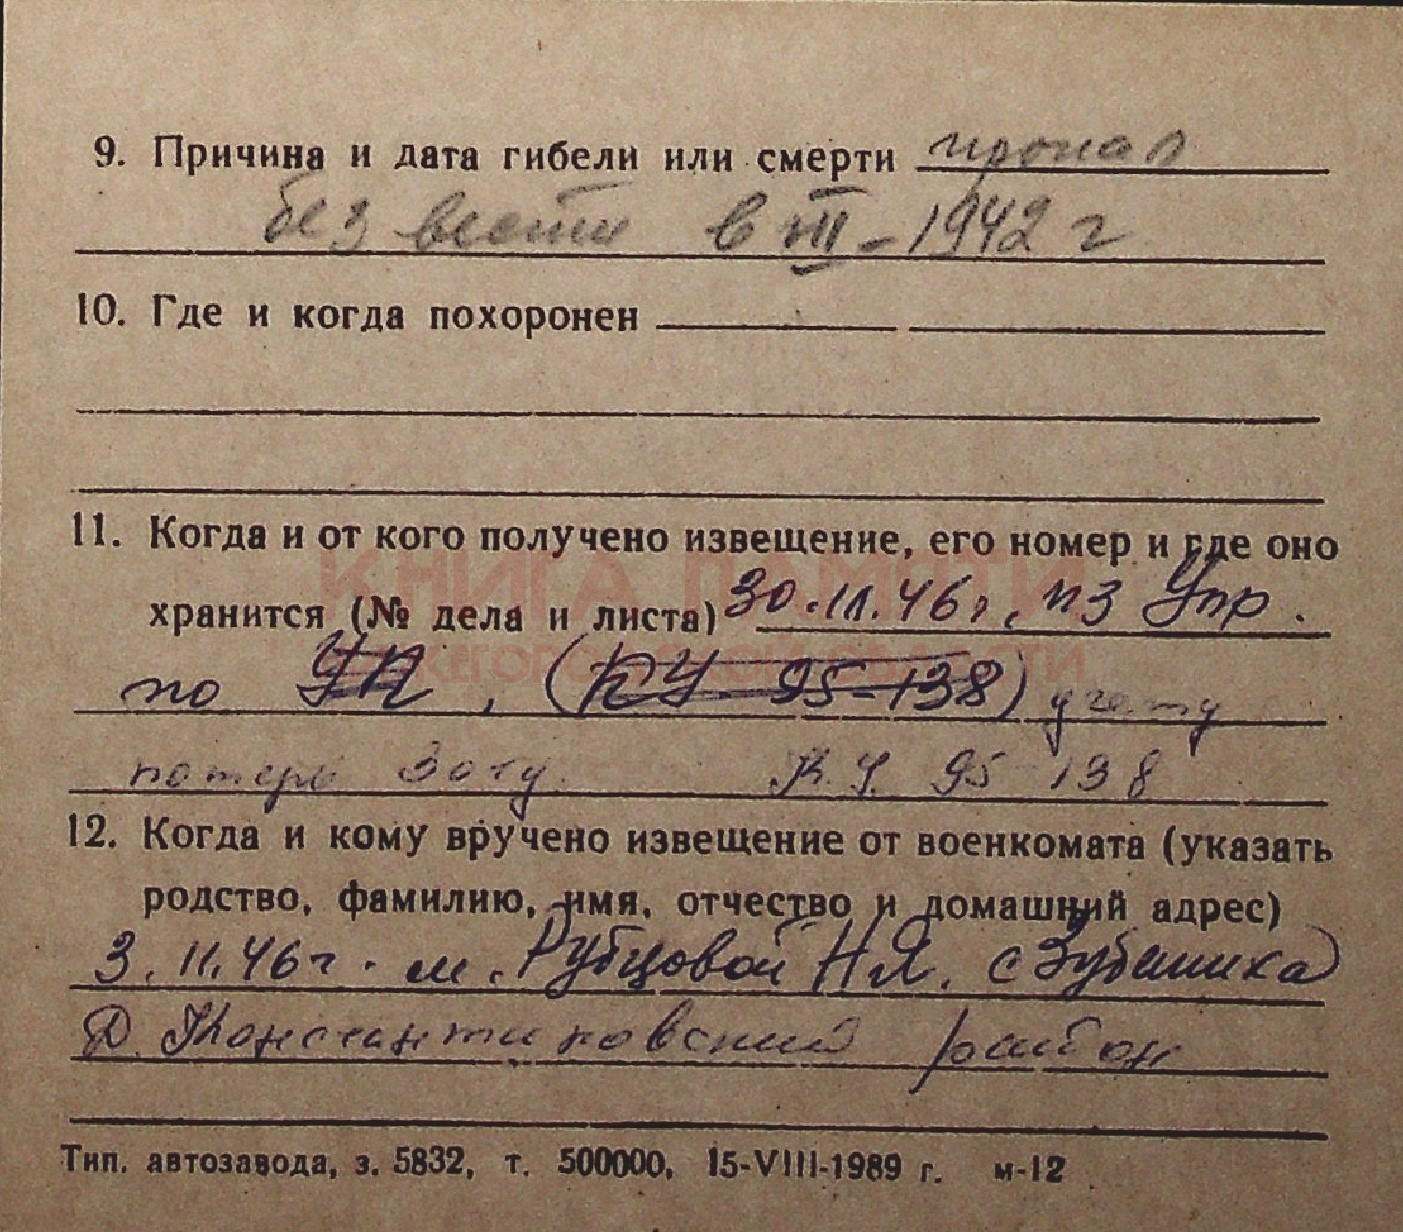 9. Причина и дата гибели или смерти пропал
без вести в III-1942 г
10. Где и когда похоронен
11. Когда и от кого получено извещение, его номер и где оно
КНИГА ПАМЯТИ
хранится (№ дела и листа) 30.11.46г, из Упр.
НИЖЕГОРОДСКОЙ ОБЛАСТИ
по УП, (КУ 95-138) учету
потерь 30 гу. К.У. 95-138
12. Когда и кому вручено извещение от военкомата (указать
родство, фамилию, имя, отчество и домашний адрес)
3.11.46г. м. Рубцовой Н Я. с
Д. Константиновский район
Тип. автозавода, з. 5832, т. 500000, 15-VIII-1989 г. м-12